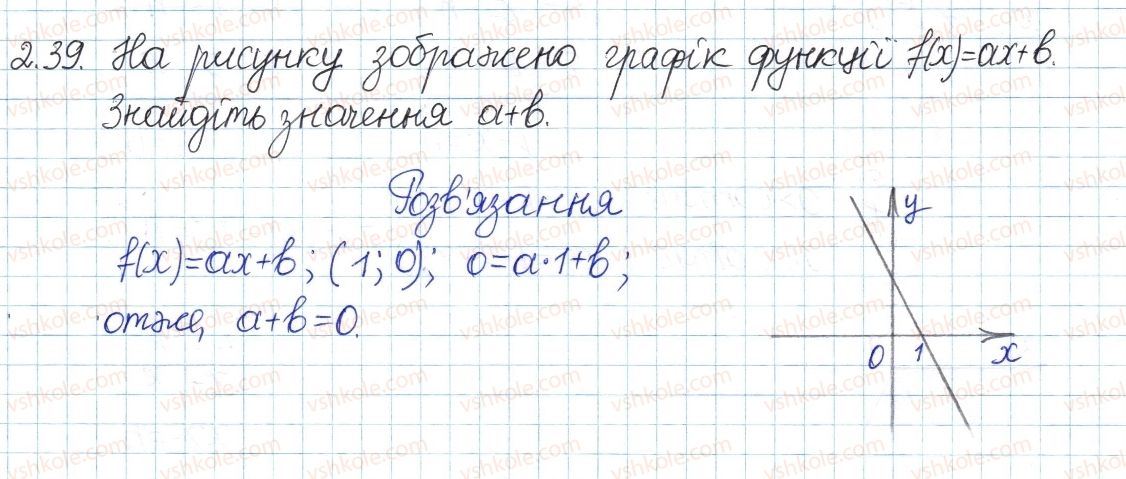 2.39. На рисунку зображено графік функції f(x)=ax+b.
Знайдіть значення a+b.
Розв'язання
f(x)=ax+b; (1; 0); 0=a·1+b;
отже, a+b=0.
y
0 1 x
vshkole.com